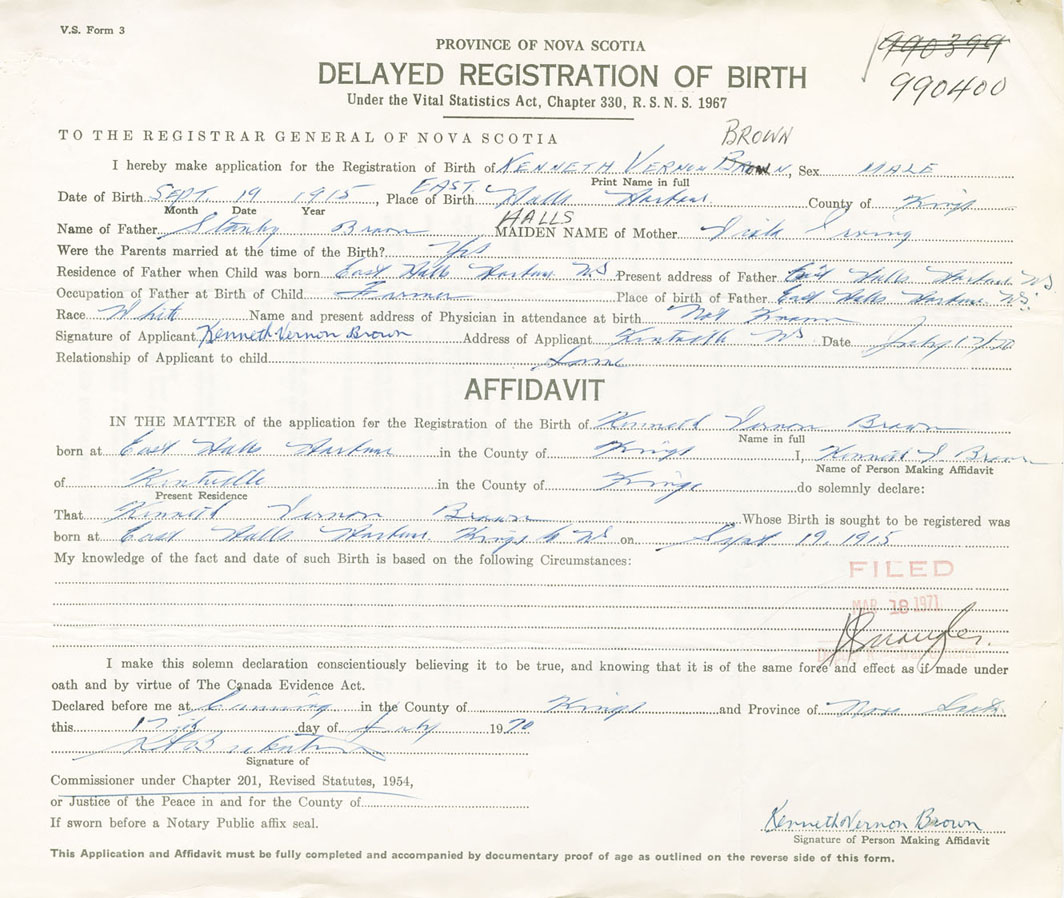 V.S. Form 3
PROVINCE OF NOVA SCOTIA
990399
DELAYED REGISTRATION OF BIRTH
990400
Under the Vital Statistics Act, Chapter 330, R. S. N. S. 1967
TO THE REGISTRAR GENERAL OF NOVA SCOTIA
BROWN
I hereby make application for the Registration of Birth of KENNETH VERNON BROWN, Sex MALE
Print Name in full
Date of Birth SEPT. 19 1915, Place of Birth EAST Halls Harbour County of Kings
Month Date Year
HALLS
Name of Father Stanley Brown MAIDEN NAME of Mother Irving
Were the Parents married at the time of the Birth? Yes
Residence of Father when Child was born East Halls Harbour NS Present address of Father East Halls Harbour NS
Occupation of Father at Birth of Child Farmer Place of birth of Father East Halls Harbour NS
Race White Name and present address of Physician in attendance at birth Not Known
Signature of Applicant Kenneth Vernon Brown Address of Applicant Kentville NS Date July 17/70
Relationship of Applicant to child Same
AFFIDAVIT
IN THE MATTER of the application for the Registration of the Birth of Kenneth Vernon Brown
Name in full
born at East Halls Harbour in the County of Kings I, Kenneth V Brown
Name of Person Making Affidavit
of Kentville in the County of Kings do solemnly declare:
Present Residence
That Kenneth Vernon Brown Whose Birth is sought to be registered was
born at East Halls Harbour Kings Co NS on Sept 19, 1915
My knowledge of the fact and date of such Birth is based on the following Circumstances:
FILED
MAR 18 1971
I make this solemn declaration conscientiously believing it to be true, and knowing that it is of the same force and effect as if made under
oath and by virtue of The Canada Evidence Act.
Declared before me at Canning in the County of Kings and Province of Nova Scotia
this 17th day of July 1970
Signature of
Commissioner under Chapter 201, Revised Statutes, 1954,
or Justice of the Peace in and for the County of
If sworn before a Notary Public affix seal.
Kenneth Vernon Brown
Signature of Person Making Affidavit
This Application and Affidavit must be fully completed and accompanied by documentary proof of age as outlined on the reverse side of this form.